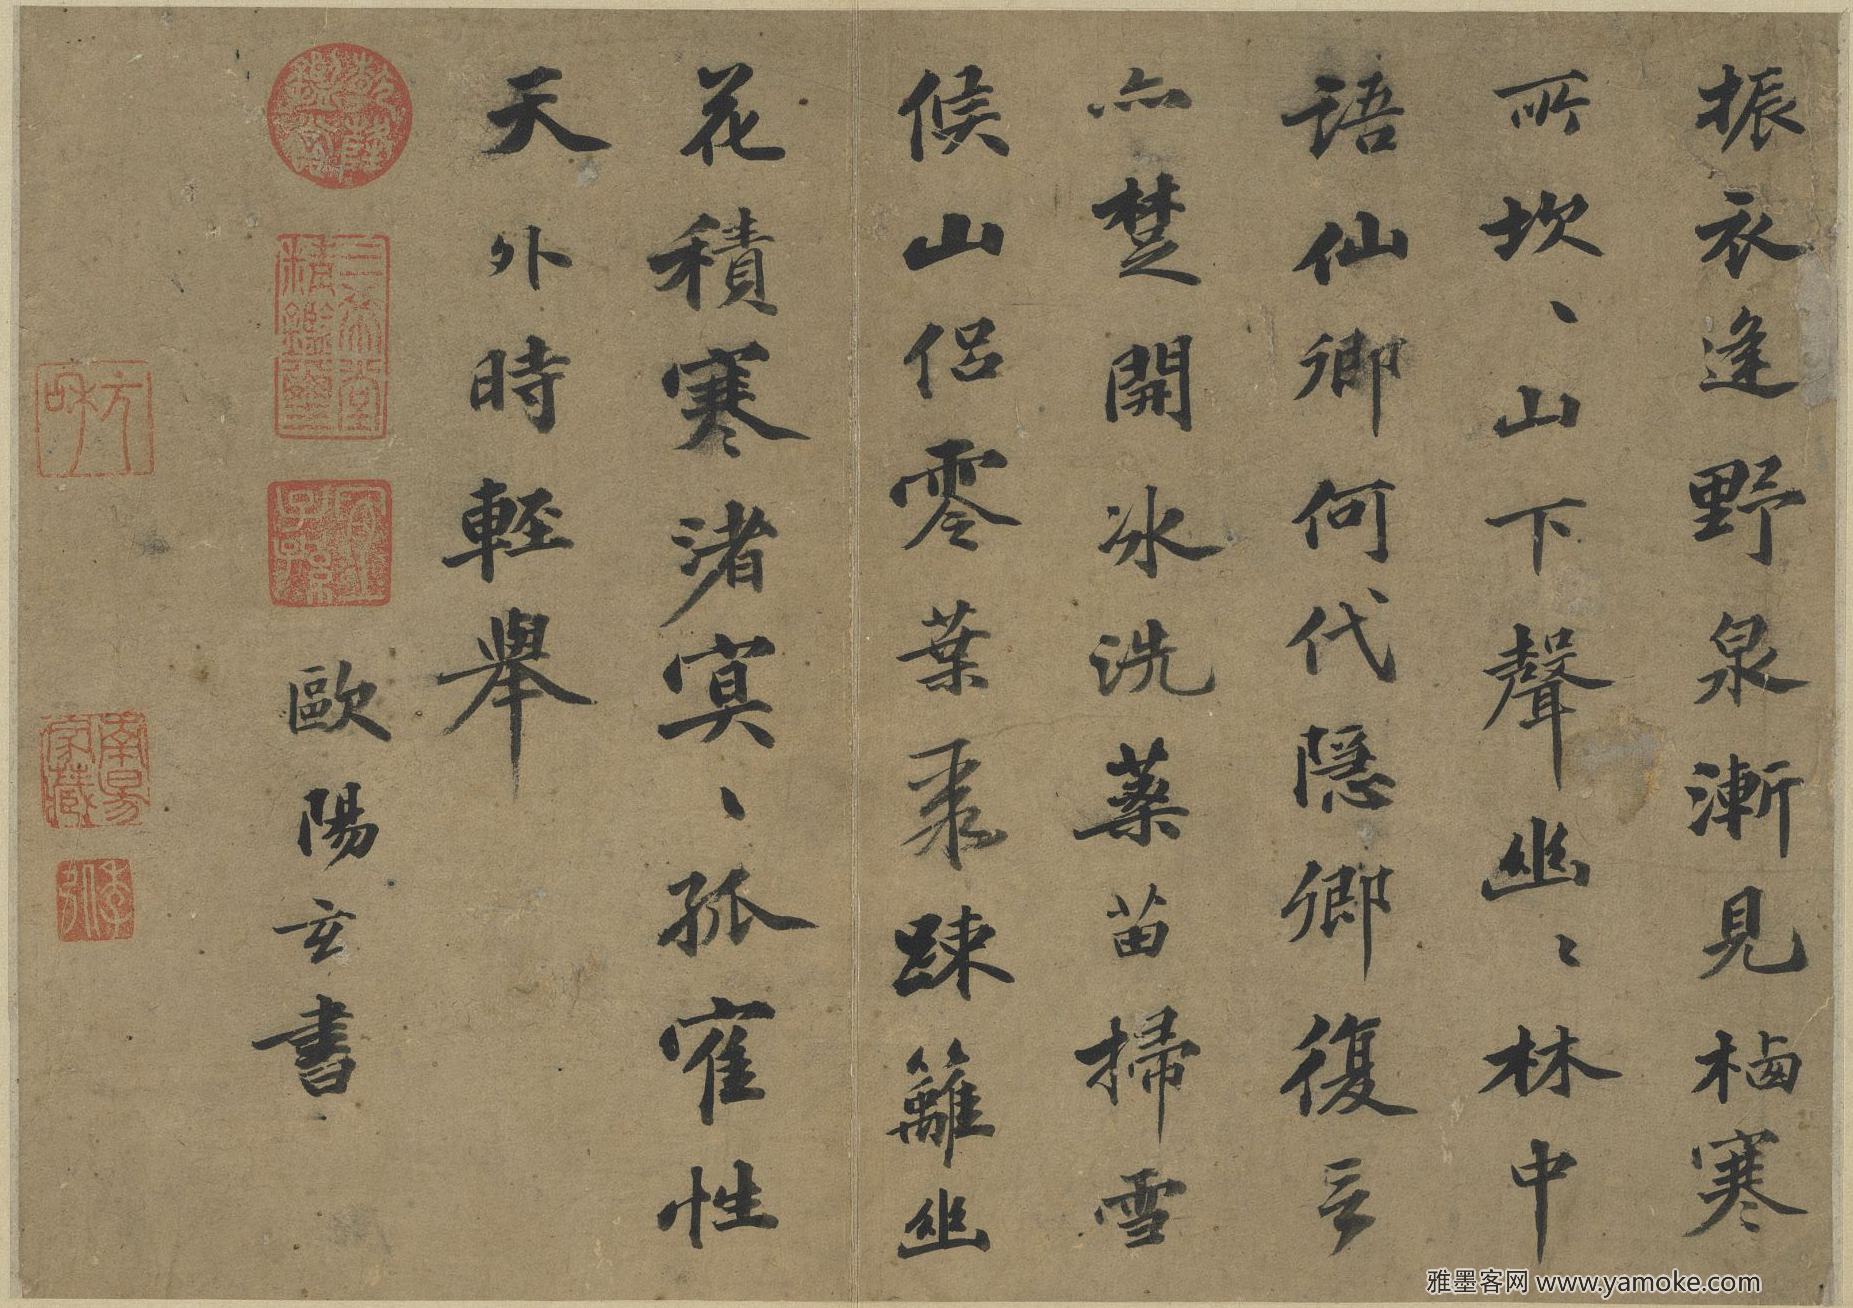 振衣逢野泉漸見栖寒
所坎、山下聲幽、林中
語仙卿何代隱卿復言
亦楚開冰洗藥苗掃雪
候山侶零葉棗踈籬幽
花積寒渚冥、孤寉性
天外時輕舉
歐陽玄書
乾隆鑑賞
三希堂精鑑璽
宜子孫
雅墨客网 www.yamoke.com